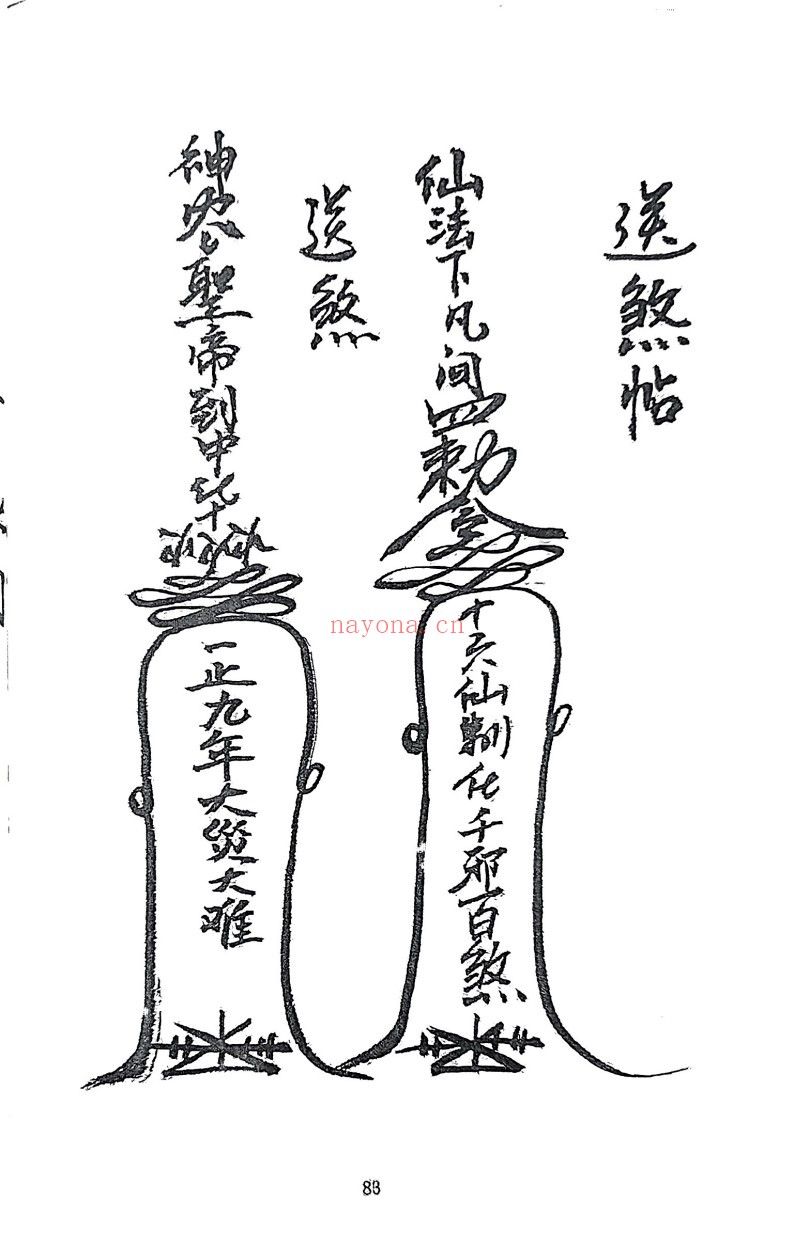 送煞帖
仙法下凡间四勅令
十六仙制化千邪百煞
送煞
神农聖帝到中
一正九年大災大难
nayona.cn
83